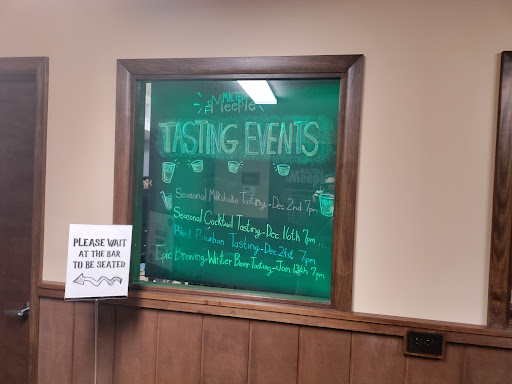 THE MALTED
Meeple
TASTING EVENTS
Seasonal Milkshake Tasting - Dec 2nd 7pm
Seasonal Cocktail Tasting - Dec 16th 7pm
Blind Bourbon Tasting - Dec 21st 7pm
Epic Brewing - Winter Beer Tasting - Jan 13th 7pm
PLEASE WAIT
AT THE BAR
TO BE SEATED